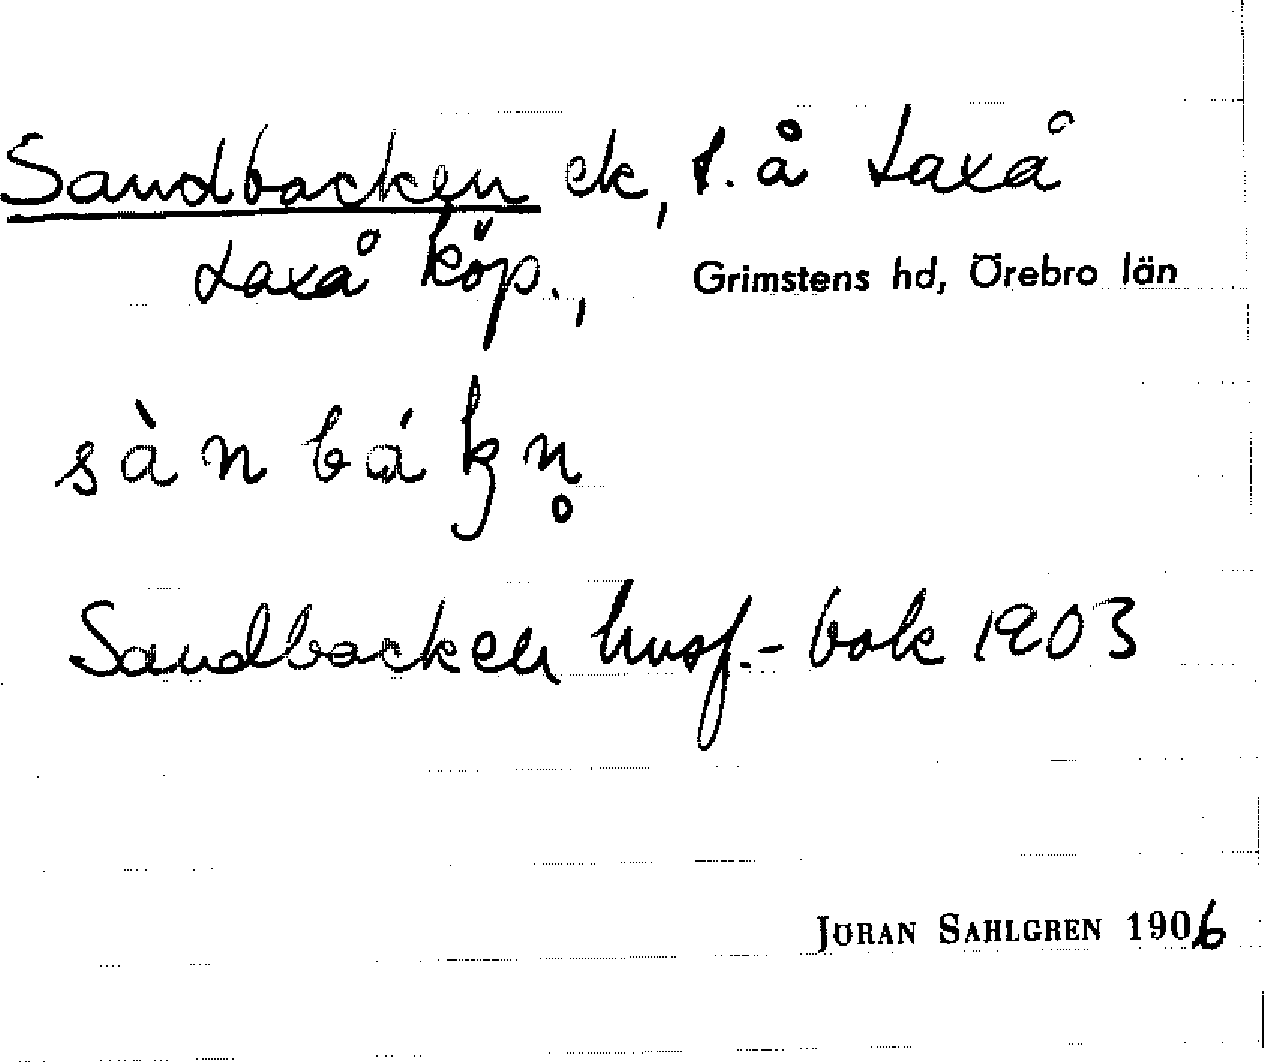 Sandbacken ek, t. å Laxå
Laxå köp., Grimstens hd, Örebro län
sànbákn̥
Sandbacken husf.-bok 1903
JÖRAN SAHLGREN 1906